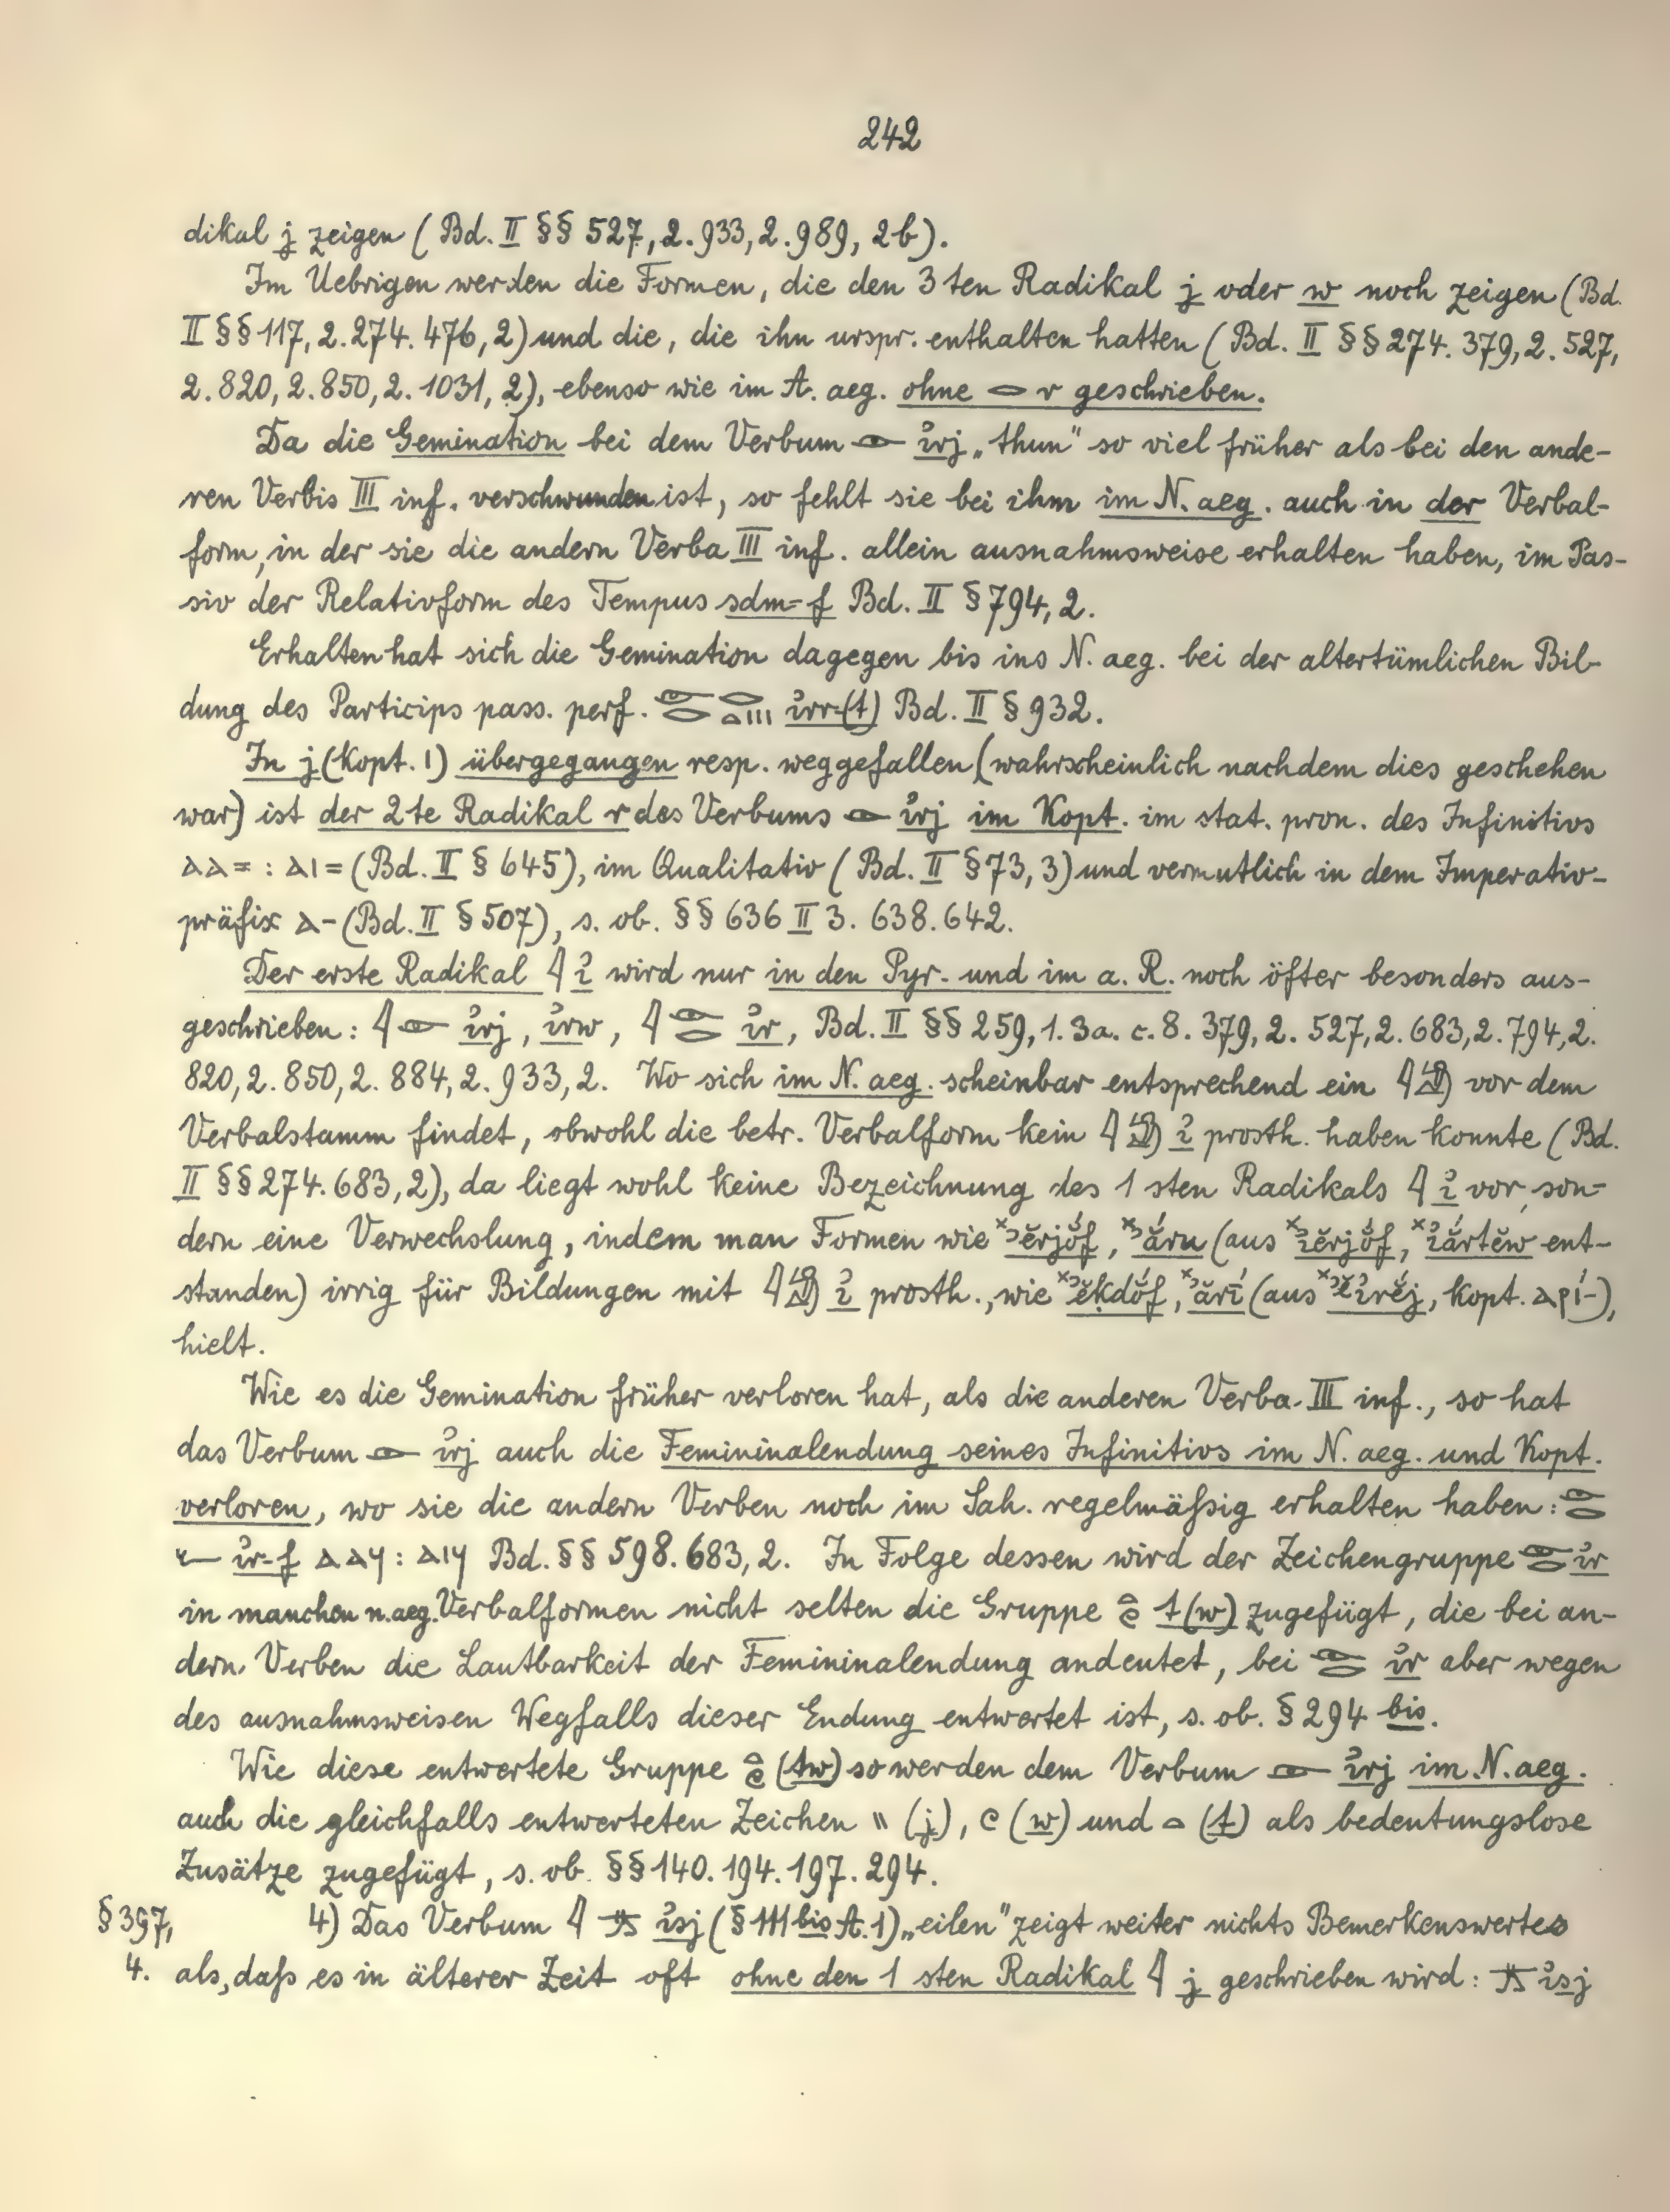 242
dikal j zeigen (Bd. II §§ 527, 2. 933, 2. 989, 2b).
Im Uebrigen werden die Formen, die den 3ten Radikal j oder w noch zeigen (Bd.
II §§ 117, 2. 274. 476, 2) und die, die ihn urspr. enthalten hatten (Bd. II §§ 274. 379, 2. 527,
2. 820, 2. 850, 2. 1031, 2), ebenso wie im A. aeg. ohne 𓂋 r geschrieben.
Da die Gemination bei dem Verbum 𓁹 ı͗rj „thun" so viel früher als bei den ande-
ren Verbis III inf. verschwunden ist, so fehlt sie bei ihm im N. aeg. auch in der Verbal-
form, in der sie die andern Verba III inf. allein ausnahmsweise erhalten haben, im Pas-
siv der Relativform des Tempus sdm=f Bd. II § 794, 2.
Erhalten hat sich die Gemination dagegen bis ins N. aeg. bei der altertümlichen Bil-
dung des Particips pass. perf. 𓁹𓂋 𓂋𓏏𓏥 ı͗rr-(t) Bd. II § 932.
In j (kopt. ⲓ) übergegangen resp. weggefallen (wahrscheinlich nachdem dies geschehen
war) ist der 2te Radikal r des Verbums 𓁹 ı͗rj im Kopt. im stat. pron. des Infinitivs
ⲁⲁ= : ⲁⲓ= (Bd. II § 645), im Qualitativ (Bd. II § 73, 3) und vermutlich in dem Imperativ-
präfix ⲁ- (Bd. II § 507), s. ob. §§ 636 II 3. 638. 642.
Der erste Radikal 𓇋 ı͗ wird nur in den Pyr. und im a. R. noch öfter besonders aus-
geschrieben: 𓇋𓁹 ı͗rj, ı͗rw, 𓇋𓁹𓂋 ı͗r, Bd. II §§ 259, 1. 3a. c. 8. 379, 2. 527, 2. 683, 2. 794, 2.
820, 2. 850, 2. 884, 2. 933, 2. Wo sich im N. aeg. scheinbar entsprechend ein 𓇋𓀁 vor dem
Verbalstamm findet, obwohl die betr. Verbalform kein 𓇋𓀁 ı͗ prosth. haben konnte (Bd.
II §§ 274. 683, 2), da liegt wohl keine Bezeichnung des 1sten Radikals 𓇋 ı͗ vor, son-
dern eine Verwechslung, indem man Formen wie ˣꜣĕrjŏ́f, ˣꜣắru (aus ˣı͗ĕrjŏ́f, ˣı͗ắrtĕw ent-
standen) irrig für Bildungen mit 𓇋𓀁 ı͗ prosth., wie ˣꜣĕḳdŏ́f, ˣꜣărī́ (aus ˣꜣĕı͗rĕ́j, kopt. ⲁⲣⲓ́-),
hielt.
Wie es die Gemination früher verloren hat, als die anderen Verba III inf., so hat
das Verbum 𓁹 ı͗rj auch die Femininalendung seines Infinitivs im N. aeg. und Kopt.
verloren, wo sie die andern Verben noch im Sah. regelmäßig erhalten haben: 𓁹𓂋
𓆑 ı͗r=f ⲁⲁϥ : ⲁⲓϥ Bd. §§ 598. 683, 2. In Folge dessen wird der Zeichengruppe 𓁹𓂋 ı͗r
in manchen n.aeg. Verbalformen nicht selten die Gruppe 𓏏𓏲 t(w) zugefügt, die bei an-
dern Verben die Lautbarkeit der Femininalendung andeutet, bei 𓁹𓂋 ı͗r aber wegen
des ausnahmsweisen Wegfalls dieser Endung entwertet ist, s. ob. § 294 bis.
Wie diese entwertete Gruppe 𓏏𓏲 (tw) so werden dem Verbum 𓁹 ı͗rj im N. aeg.
auch die gleichfalls entwerteten Zeichen 𓏭 (j), 𓏲 (w) und 𓏏 (t) als bedeutungslose
Zusätze zugefügt, s. ob. §§ 140. 194. 197. 294.
§ 397, 4) Das Verbum 𓇋 𓊃𓂻 ı͗sj (§ 111 bis A. 1) „eilen" zeigt weiter nichts Bemerkenswertes
4. als, daß es in älterer Zeit oft ohne den 1sten Radikal 𓇋 j geschrieben wird: 𓊃𓂻 ı͗sj